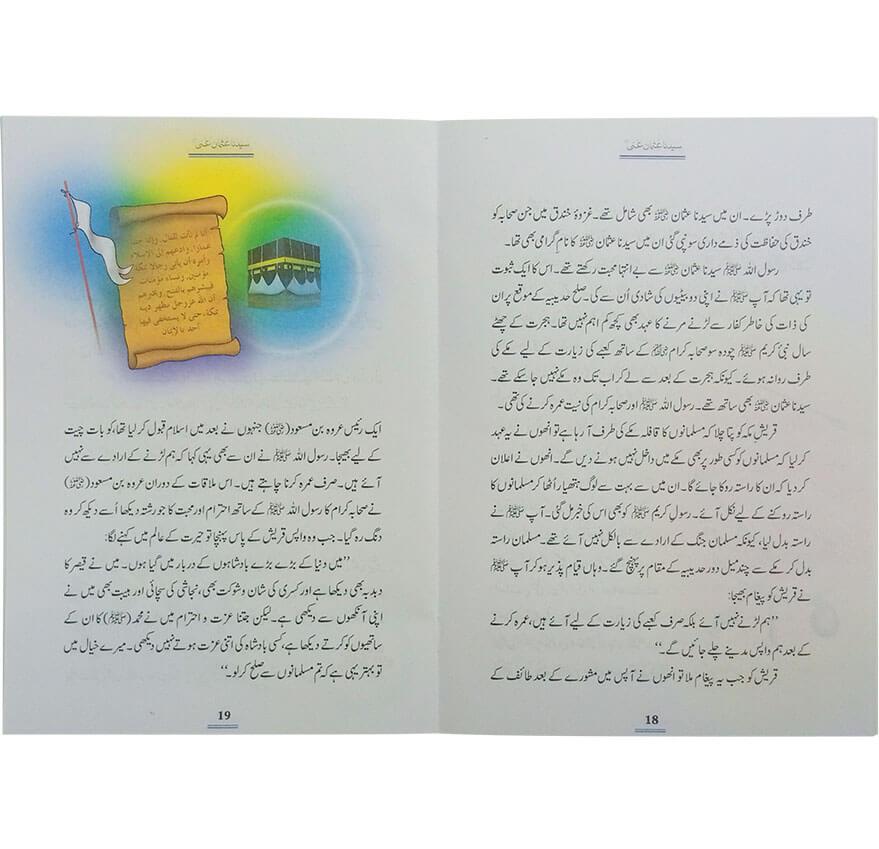 سیدنا عثمان غنیؓ
طرف دوڑ پڑے۔ ان میں سیدنا عثمان ؓ بھی شامل تھے۔ غزوۂ خندق میں جن صحابہ کو
خندق کی حفاظت کی ذمے داری سونپی گئی ان میں سیدنا عثمان ؓ کا نام گرامی بھی تھا۔
رسول اللہ ﷺ سیدنا عثمان ؓ سے بے انتہا محبت رکھتے تھے۔ اس کا ایک ثبوت
تو یہی تھا کہ آپ ﷺ نے اپنی دو بیٹیوں کی شادی اُن سے کی۔ صلح حدیبیہ کے موقع پر ان
کی ذات کی خاطر کفار سے لڑنے مرنے کا عہد بھی کچھ کم اہم نہیں تھا۔ ہجرت کے چھٹے
سال نبیٔ کریم ﷺ چودہ سو صحابہ کرام ؓ کے ساتھ کعبے کی زیارت کے لیے مکے کی
طرف روانہ ہوئے۔ کیونکہ ہجرت کے بعد سے لے کر اب تک وہ مکے نہیں جا سکے تھے۔
سیدنا عثمان ؓ بھی ساتھ تھے۔ رسول اللہ ﷺ اور صحابہ کرام کی نیت عمرہ کرنے کی تھی۔
قریشِ مکہ کو پتا چلا کہ مسلمانوں کا قافلہ مکے کی طرف آ رہا ہے تو انھوں نے یہ عہد
کر لیا کہ مسلمانوں کو کسی طور پر بھی مکے میں داخل نہیں ہونے دیں گے۔ انھوں نے اعلان
کر دیا کہ ان کا راستہ روکا جائے گا۔ ان میں سے بہت سے لوگ ہتھیار اُٹھا کر مسلمانوں کا
راستہ روکنے کے لیے نکل آئے۔ رسولِ کریم ﷺ کو بھی اس کی خبر مل گئی۔ آپ ﷺ نے
راستہ بدل لیا، کیونکہ مسلمان جنگ کے ارادے سے بالکل نہیں آئے تھے۔ مسلمان راستہ
بدل کر مکے سے چند میل دور حدیبیہ کے مقام پر پہنچ گئے۔ وہاں قیام پذیر ہو کر آپ ﷺ
نے قریش کو پیغام بھیجا:
’’ہم لڑنے نہیں آئے بلکہ صرف کعبے کی زیارت کے لیے آئے ہیں، عمرہ کرنے
کے بعد ہم واپس مدینے چلے جائیں گے۔‘‘
قریش کو جب یہ پیغام ملا تو انھوں نے آپس میں مشورے کے بعد طائف کے
18
سیدنا عثمان غنیؓ
ایک رئیس عروہ بن مسعود (ؓ) جنہوں نے بعد میں اسلام قبول کر لیا تھا، کو بات چیت
کے لیے بھیجا۔ رسول اللہ ﷺ نے ان سے بھی یہی کہا کہ ہم لڑنے کے ارادے سے نہیں
آئے ہیں۔ صرف عمرہ کرنا چاہتے ہیں۔ اس ملاقات کے دوران عروہ بن مسعود (ؓ)
نے صحابہ کرام کا رسول اللہ ﷺ کے ساتھ احترام اور محبت کا جو رشتہ دیکھا اُسے دیکھ کر وہ
دنگ رہ گیا۔ جب وہ واپس قریش کے پاس پہنچا تو حیرت کے عالم میں کہنے لگا:
’’میں دنیا کے بڑے بڑے بادشاہوں کے دربار میں گیا ہوں۔ میں نے قیصر کا
دبدبہ بھی دیکھا ہے اور کسریٰ کی شان و شوکت بھی، نجاشی کی سچائی اور ہیبت بھی میں نے
اپنی آنکھوں سے دیکھی ہے۔ لیکن جتنا عزت و احترام میں نے محمد (ﷺ) کا ان کے
ساتھیوں کو کرتے دیکھا ہے، کسی بادشاہ کی اتنی عزت ہوتے نہیں دیکھی۔ میرے خیال میں
تو بہتر یہی ہے کہ تم مسلمانوں سے صلح کر لو۔‘‘
19